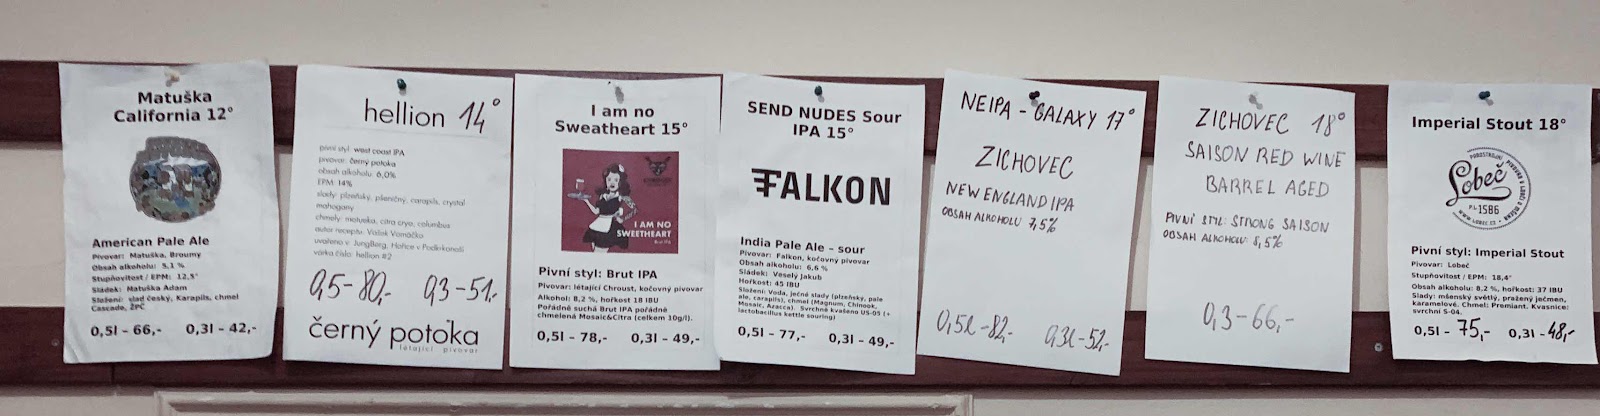 Matuška
California 12°
American Pale Ale
Pivovar: Matuška, Broumy
Obsah alkoholu: 5,1 %
Stupňovitost / EPM: 12,5°
Sládek: Matuška Adam
Složení: slad český, Karapils, chmel
Cascade, ŽPČ
0,5l – 66,- 0,3l – 42,-
hellion 14°
pivní styl: west coast IPA
pivovar: černý potoka
obsah alkoholu: 6,0%
EPM: 14%
slady: plzeňský, pšeničný, carapils, crystal
mahogany
chmely: motueka, citra cryo, columbus
autor receptu: Vašek Vomáčko
uvařeno v: JungBerg, Hořice v Podkrkonoší
várka číslo: hellion #2
0,5-80,- 0,3-51,-
černý potoka
létající pivovar
I am no
Sweatheart 15°
I AM NO
SWEETHEART
Brut IPA
Pivní styl: Brut IPA
Pivovar: létající Chroust, kočovný pivovar
Alkohol: 8,2 %, hořkost 18 IBU
Pořádně suchá Brut IPA pořádně
chmelená Mosaic&Citra (celkem 10g/l).
0,5l – 78,- 0,3l – 49,-
SEND NUDES Sour
IPA 15°
FALKON
India Pale Ale – sour
Pivovar: Falkon, kočovný pivovar
Obsah alkoholu: 6,6 %
Sládek: Veselý Jakub
Hořkost: 45 IBU
Složení: Voda, ječné slady (plzeňský, pale
ale, carapils), chmel (Magnum, Chinook,
Mosaic, Azacca). Svrchně kvašeno US-05 (+
lactobacillus kettle souring)
0,5l – 77,- 0,3l – 49,-
NEIPA - GALAXY 17°
ZICHOVEC
NEW ENGLAND IPA
OBSAH ALKOHOLU 7,5%
0,5l-82,- 0,3l-52,-
ZICHOVEC 18°
SAISON RED WINE
BARREL AGED
PIVNÍ STYL: STRONG SAISON
OBSAH ALKOHOLU: 8,5%
0,3-66,-
Imperial Stout 18°
Lobeč
P.L. 1586
WWW.LOBEC.CZ
Pivní styl: Imperial Stout
Pivovar: Lobeč
Stupňovitost / EPM: 18,4°
Obsah alkoholu: 8,2 %, hořkost: 37 IBU
Slady: mšenský světlý, pražený ječmen,
karamelové. Chmel: Premiant. Kvasnice:
svrchní S-04.
0,5l – 75,- 0,3l – 48,-